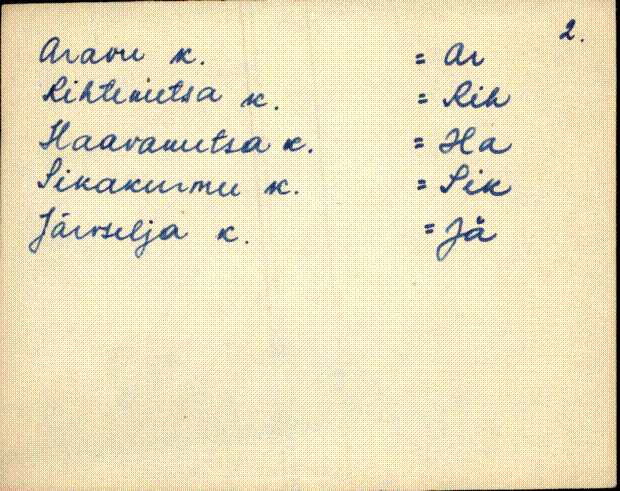 2.
Aravu k. = Ar
Rihtemetsa k. = Rih
Haavametsa k. = Ha
Sikakurmu k. = Sik
Järvselja k. = Jä